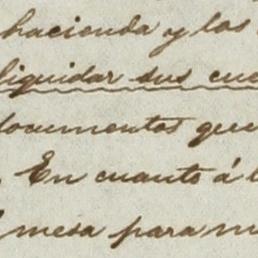 hacienda y los
liquidar sus cue
documentos que
En cuanto á l
mesa para m